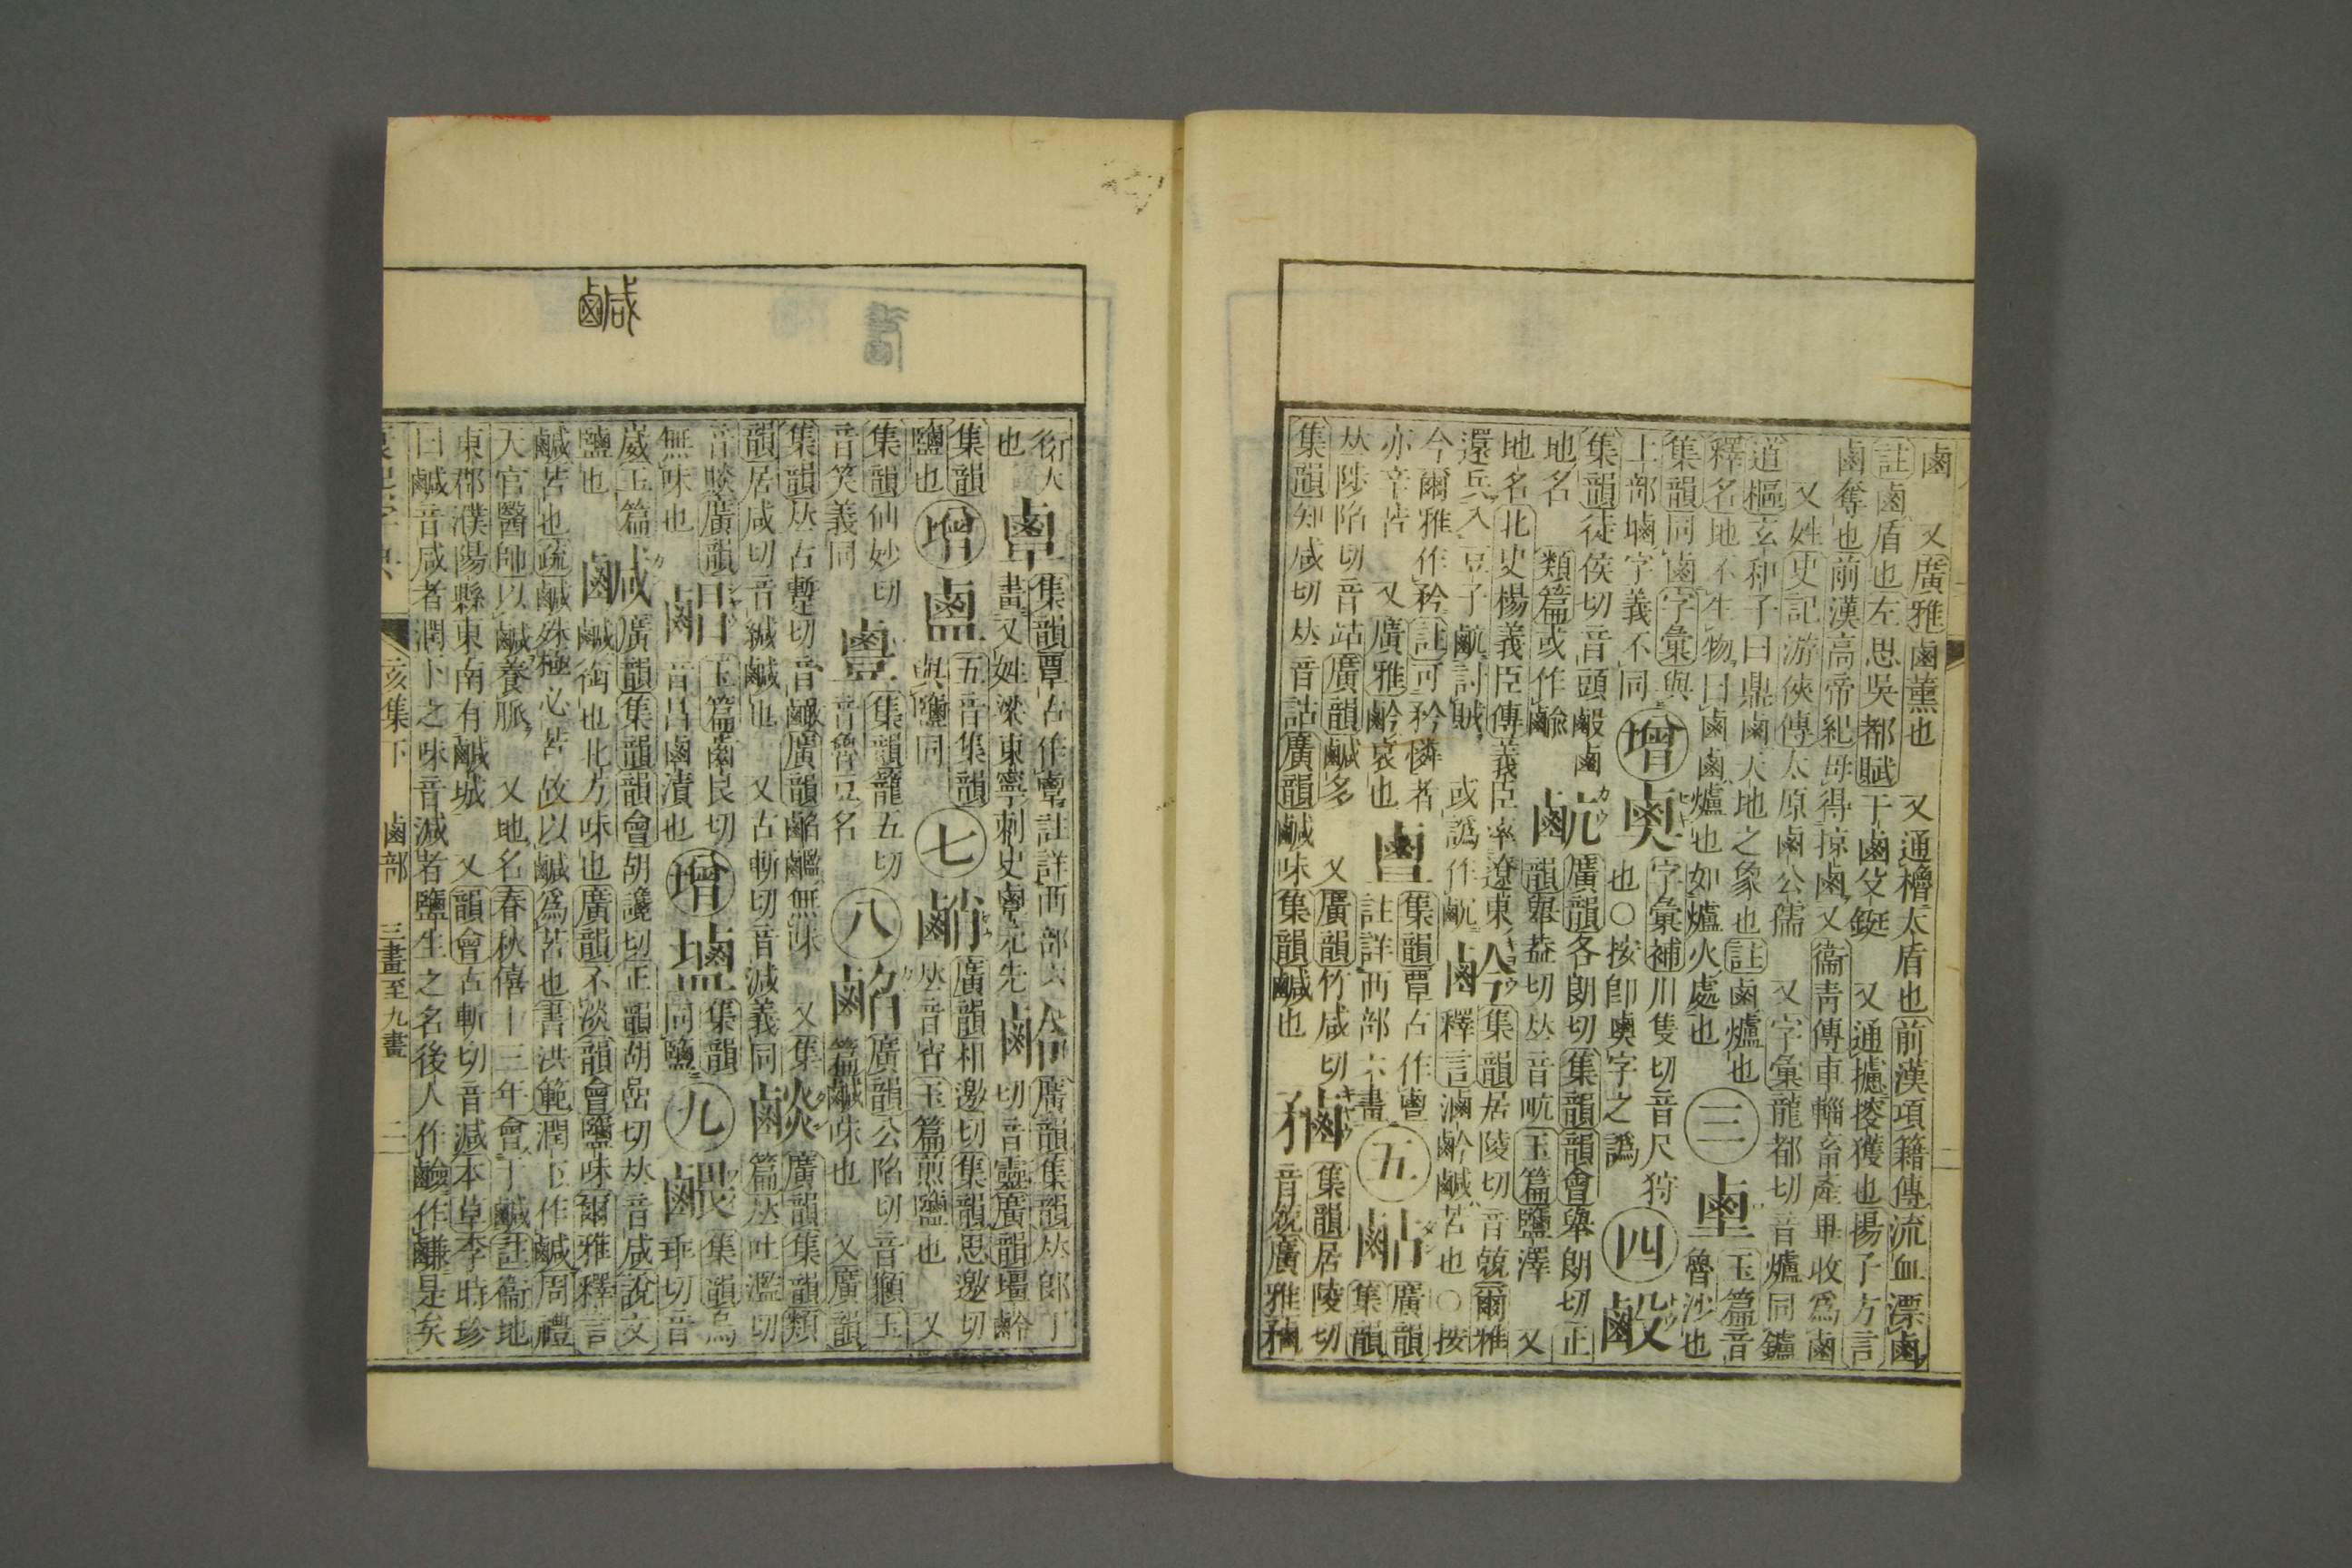 鹵　又廣雅鹵薰也　又通櫓大盾也前漢項籍傳流血漂鹵
註鹵盾也左思吳都賦干鹵殳鋋　又通擄掠獲也揚子方言
鹵奪也前漢高帝紀毋得掠鹵又衞靑傳車輜畜產畢收爲鹵
又姓史記游俠傳太原鹵公孺　又字彙龍都切音爐同鑪
道樞玄和子曰鼎鹵天地之象也註鹵爐也
釋名地不生物曰鹵鹵爐也如爐火處也
三
玉篇音魯沙也
集韻同鹵字彙與土部塷字義不同
增
字彙補川隻切音尺狩也○按卽奭字之譌
四
集韻徒侯切音頭鹵地名
類篇或作
䴚
廣韻各朗切集韻韻會舉朗切正韻舉盎切𠀤音㽘玉篇鹽澤　又
地名北史楊義臣傳義臣率遼東還兵入豆子䴚討賊
集韻居陵切音兢爾雅釋言滷矜鹹苦也○按
今爾雅作矜註可矜憐者亦辛苦　又廣雅哀也
集韻覃古作註詳襾部六畫
五
䴛
廣韻集韻
𠀤陟陷切音站廣韻鹹多　又廣韻竹咸切
集韻知咸切𠀤音詀廣韻鹹味集韻鹹也
集韻居陵切音兢廣雅
鹹
衍大也
集韻覃古作註詳襾部六畫又姓梁東寧刺史元先
廣韻集韻𠀤郎丁切音靈廣韻
集韻鹽也
增
五音集韻與鹽同
七
廣韻相邀切集韻思邀切𠀤音宵玉篇煎鹽也　又
集韻仙妙切音笑義同
集韻籠五切音魯豆名
八
䤘
廣韻公陷切音玉篇鹹味也　又廣韻
集韻𠀤古蹔切音廣韻無味　又集
韻居咸切音緘鹹也　又古斬切音減義同
廣韻集韻類篇𠀤吐濫切
音賧廣韻無味也
玉篇齒良切音昌鹵漬也
增
集韻同鹽
九
集韻烏乖切音
崴玉篇鹽也
鹹
廣韻集韻韻會胡讒切正韻胡嵒切𠀤音咸說文
鹹銜也北方味也廣韻不淡韻會鹽味爾雅釋言
鹹苦也疏鹹殊極必苦故以鹹爲苦也書洪範潤下作鹹周禮
天官醫師以鹹養脈　又地名春秋僖十三年會于鹹註衞地
東郡濮陽縣東南有鹹城　又韻會古斬切音減本草李時珍
曰鹹音咸者潤下之味音減者鹽生之名後人作鹼作是矣
亥集下　鹵部　三畫至九畫　二